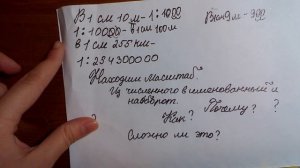 В 1 см 10 м - 1 : 1000
1 : 10000 - в 1 см 100 м
в 1 см 255 км -
1 : 25 4 300000
Находим масштаб.
Из численного в именованный и
наоборот.
Почему?
?
Как?
?
Сложно ли это?